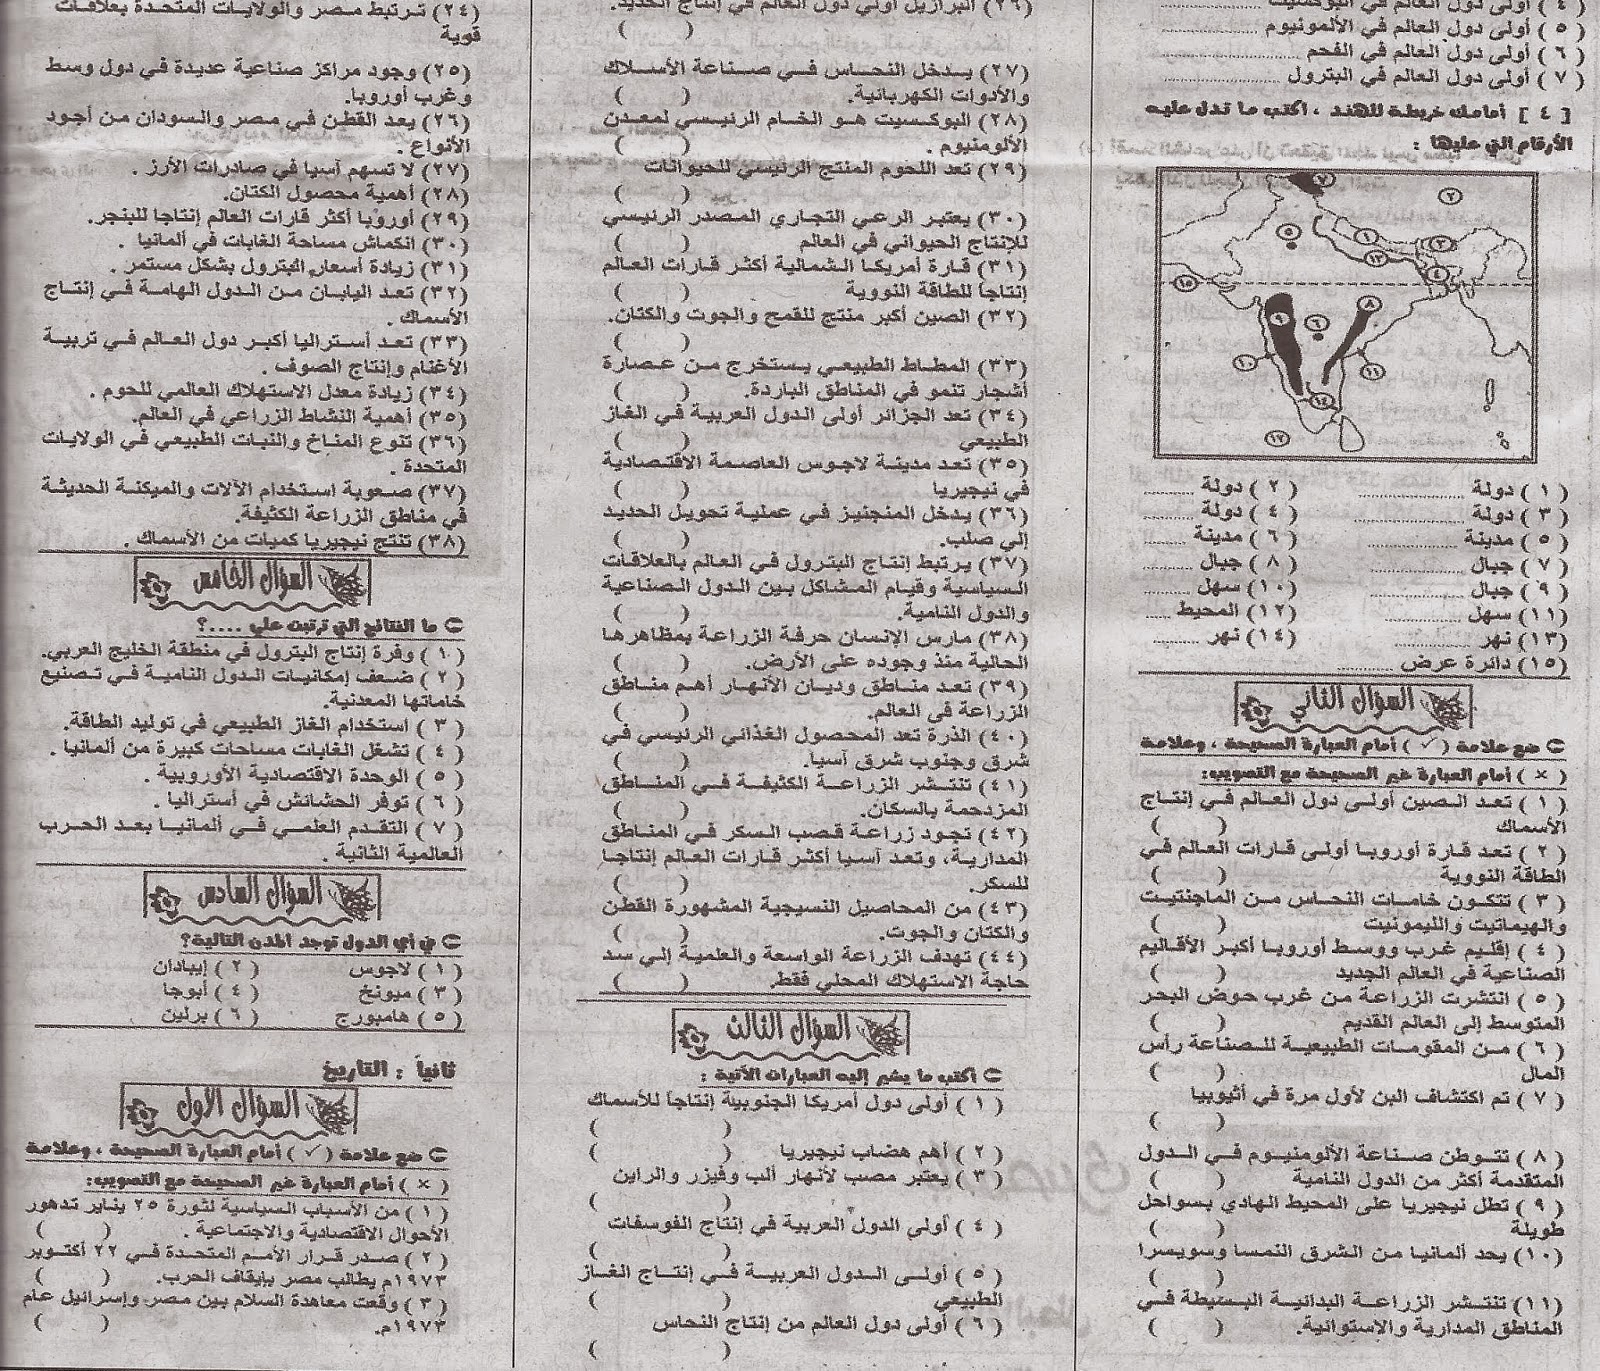 ( ٤ ) أولى دول العالم في البوكسيت
( ٥ ) أولى دول العالم في الألمونيوم
( ٦ ) أولى دول العالم في الفحم
( ٧ ) أولى دول العالم في البترول
[ ٤ ] أمامك خريطة للهند ، اكتب ما تدل عليه
الأرقام التي عليها :
( ١ ) دولة ( ٢ ) دولة
( ٣ ) دولة ( ٤ ) دولة
( ٥ ) مدينة ( ٦ ) مدينة
( ٧ ) جبال ( ٨ ) جبال
( ٩ ) جبال (١٠) سهل
(١١) سهل (١٢) المحيط
(١٣) نهر (١٤) نهر
(١٥) دائرة عرض
السؤال الثاني
ضع علامة ( ✓ ) أمام العبارة الصحيحة ، وعلامة
( × ) أمام العبارة غير الصحيحة مع التصويب:
( ١ ) تعد الصين أولى دول العالم في إنتاج
الأسماك ( )
( ٢ ) تعد قارة أوروبا أولى قارات العالم في
الطاقة النووية ( )
( ٣ ) تتكون خامات النحاس من الماجنتيت
والهيماتيت والليمونيت ( )
( ٤ ) إقليم غرب ووسط أوروبا أكبر الأقاليم
الصناعية في العالم الجديد ( )
( ٥ ) انتشرت الزراعة من غرب حوض البحر
المتوسط إلى العالم القديم ( )
( ٦ ) من المقومات الطبيعية للصناعة رأس
المال ( )
( ٧ ) تم اكتشاف البن لأول مرة في أثيوبيا
( )
( ٨ ) تتوطن صناعة الألومنيوم في الدول
المتقدمة أكثر من الدول النامية ( )
( ٩ ) تطل نيجيريا على المحيط الهادي بسواحل
طويلة ( )
(١٠) يحد ألمانيا من الشرق النمسا وسويسرا
( )
(١١) تنتشر الزراعة البدائية البسيطة في
المناطق المدارية والاستوائية. ( )
(٢٦) البرازيل أولى دول العالم في إنتاج الحديد.
( )
(٢٧) يدخل النحاس في صناعة الأسلاك
والأدوات الكهربائية. ( )
(٢٨) البوكسيت هو الخام الرئيسي لمعدن
الألومنيوم . ( )
(٢٩) تعد اللحوم المنتج الرئيسي للحيوانات
( )
(٣٠) يعتبر الرعي التجاري المصدر الرئيسي
للإنتاج الحيواني في العالم ( )
(٣١) قارة أمريكا الشمالية أكثر قارات العالم
إنتاجاً للطاقة النووية ( )
(٣٢) الصين أكبر منتج للقمح والجوت والكتان.
( )
(٣٣) المطاط الطبيعي يستخرج من عصارة
أشجار تنمو في المناطق الباردة. ( )
(٣٤) تعد الجزائر أولى الدول العربية في الغاز
الطبيعي ( )
(٣٥) تعد مدينة لاجوس العاصمة الاقتصادية
في نيجيريا ( )
(٣٦) يدخل المنجنيز في عملية تحويل الحديد
إلى صلب. ( )
(٣٧) يرتبط إنتاج البترول في العالم بالعلاقات
السياسية وقيام المشاكل بين الدول الصناعية
والدول النامية. ( )
(٣٨) مارس الإنسان حرفة الزراعة بمظاهرها
الحالية منذ وجوده على الأرض. ( )
(٣٩) تعد مناطق وديان الأنهار أهم مناطق
الزراعة في العالم. ( )
(٤٠) الذرة تعد المحصول الغذائي الرئيسي في
شرق وجنوب شرق آسيا. ( )
(٤١) تنتشر الزراعة الكثيفة في المناطق
المزدحمة بالسكان. ( )
(٤٢) تجود زراعة قصب السكر في المناطق
المدارية، وتعد آسيا أكثر قارات العالم إنتاجا
للسكر. ( )
(٤٣) من المحاصيل النسيجية المشهورة القطن
والكتان والجوت. ( )
(٤٤) تهدف الزراعة الواسعة والعلمية إلى سد
حاجة الاستهلاك المحلي فقط. ( )
السؤال الثالث
اكتب ما يشير إليه العبارات الآتية :
( ١ ) أولى دول أمريكا الجنوبية إنتاجاً للأسماك
( )
( ٢ ) أهم هضاب نيجيريا ( )
( ٣ ) يعتبر مصب لأنهار ألب وفيزر والراين
( )
( ٤ ) أولى الدول العربية في إنتاج الفوسفات
( )
( ٥ ) أولى الدول العربية في إنتاج الغاز
الطبيعي ( )
( ٦ ) أولى دول العالم من إنتاج النحاس
( )
(٢٤) ترتبط مصر والولايات المتحدة بعلاقات
قوية
(٢٥) وجود مراكز صناعية عديدة في دول وسط
وغرب أوروبا.
(٢٦) يعد القطن في مصر والسودان من أجود
الأنواع .
(٢٧) لا تسهم آسيا في صادرات الأرز .
(٢٨) أهمية محصول الكتان.
(٢٩) أوروبا أكثر قارات العالم إنتاجا للبنجر.
(٣٠) انكماش مساحة الغابات في ألمانيا .
(٣١) زيادة أسعار البترول بشكل مستمر .
(٣٢) تعد اليابان من الدول الهامة في إنتاج
الأسماك .
(٣٣) تعد أستراليا أكبر دول العالم في تربية
الأغنام وإنتاج الصوف .
(٣٤) زيادة معدل الاستهلاك العالمي للحوم .
(٣٥) أهمية النشاط الزراعي في العالم.
(٣٦) تنوع المناخ والنبات الطبيعي في الولايات
المتحدة .
(٣٧) صعوبة استخدام الآلات والميكنة الحديثة
في مناطق الزراعة الكثيفة.
(٣٨) تنتج نيجيريا كميات من الأسماك .
السؤال الخامس
ما النتائج التي ترتبت على ....؟
( ١ ) وفرة إنتاج البترول في منطقة الخليج العربي.
( ٢ ) ضعف إمكانيات الدول النامية في تصنيع
خاماتها المعدنية.
( ٣ ) استخدام الغاز الطبيعي في توليد الطاقة.
( ٤ ) تشغل الغابات مساحات كبيرة من ألمانيا .
( ٥ ) الوحدة الاقتصادية الأوروبية .
( ٦ ) توفر الحشائش في أستراليا .
( ٧ ) التقدم العلمي في ألمانيا بعد الحرب
العالمية الثانية .
السؤال السادس
في أي الدول توجد المدن التالية؟
( ١ ) لاجوس ( ٢ ) إيبادان
( ٣ ) ميونخ ( ٤ ) أبوجا
( ٥ ) هامبورج ( ٦ ) برلين
ثانياً : التاريخ
السؤال الأول
ضع علامة ( ✓ ) أمام العبارة الصحيحة ، وعلامة
( × ) أمام العبارة غير الصحيحة مع التصويب:
( ١ ) من الأسباب السياسية لثورة ٢٥ يناير تدهور
الأحوال الاقتصادية والاجتماعية . ( )
( ٢ ) صدر قرار الأمم المتحدة في ٢٢ أكتوبر
١٩٧٣م يطالب مصر بإيقاف الحرب. ( )
( ٣ ) وقعت معاهدة السلام بين مصر وإسرائيل عام
١٩٧٣م. ( )